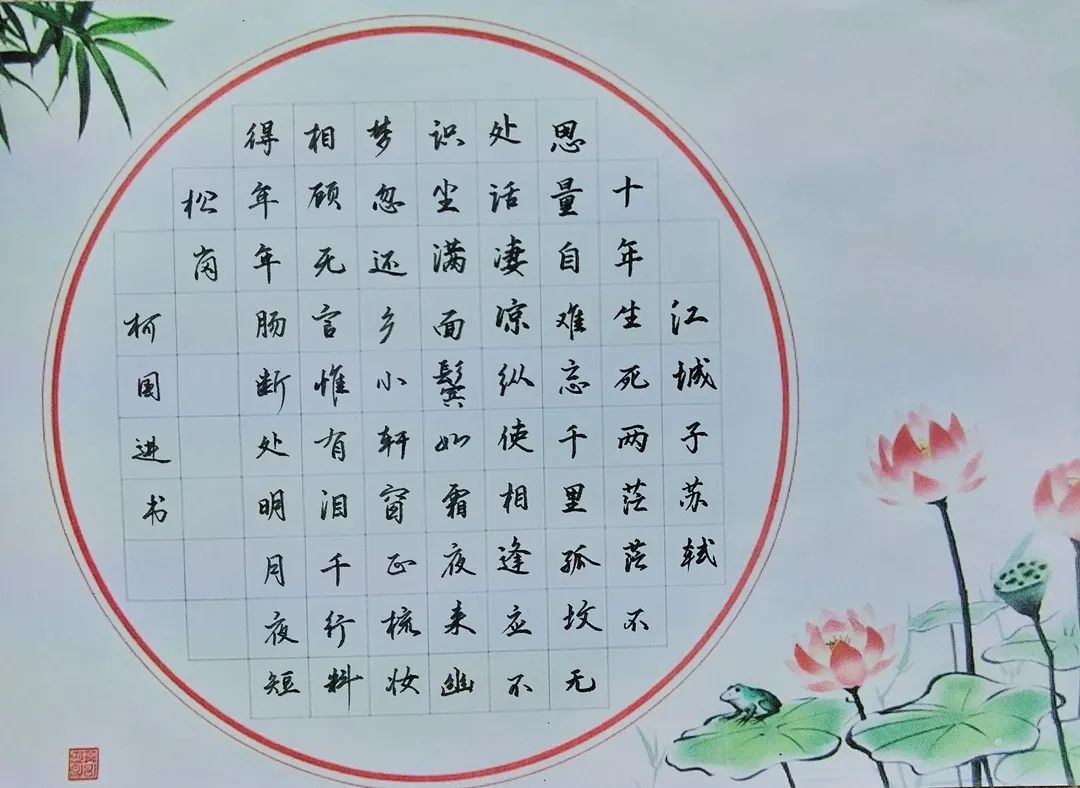 江城子苏轼
十年生死两茫茫不
思量自难忘千里孤坟无
处话凄凉纵使相逢应不
识尘满面鬓如霜夜来幽
梦忽还乡小轩窗正梳妆
相顾无言惟有泪千行料
得年年肠断处明月夜短
松岗
柯国进书